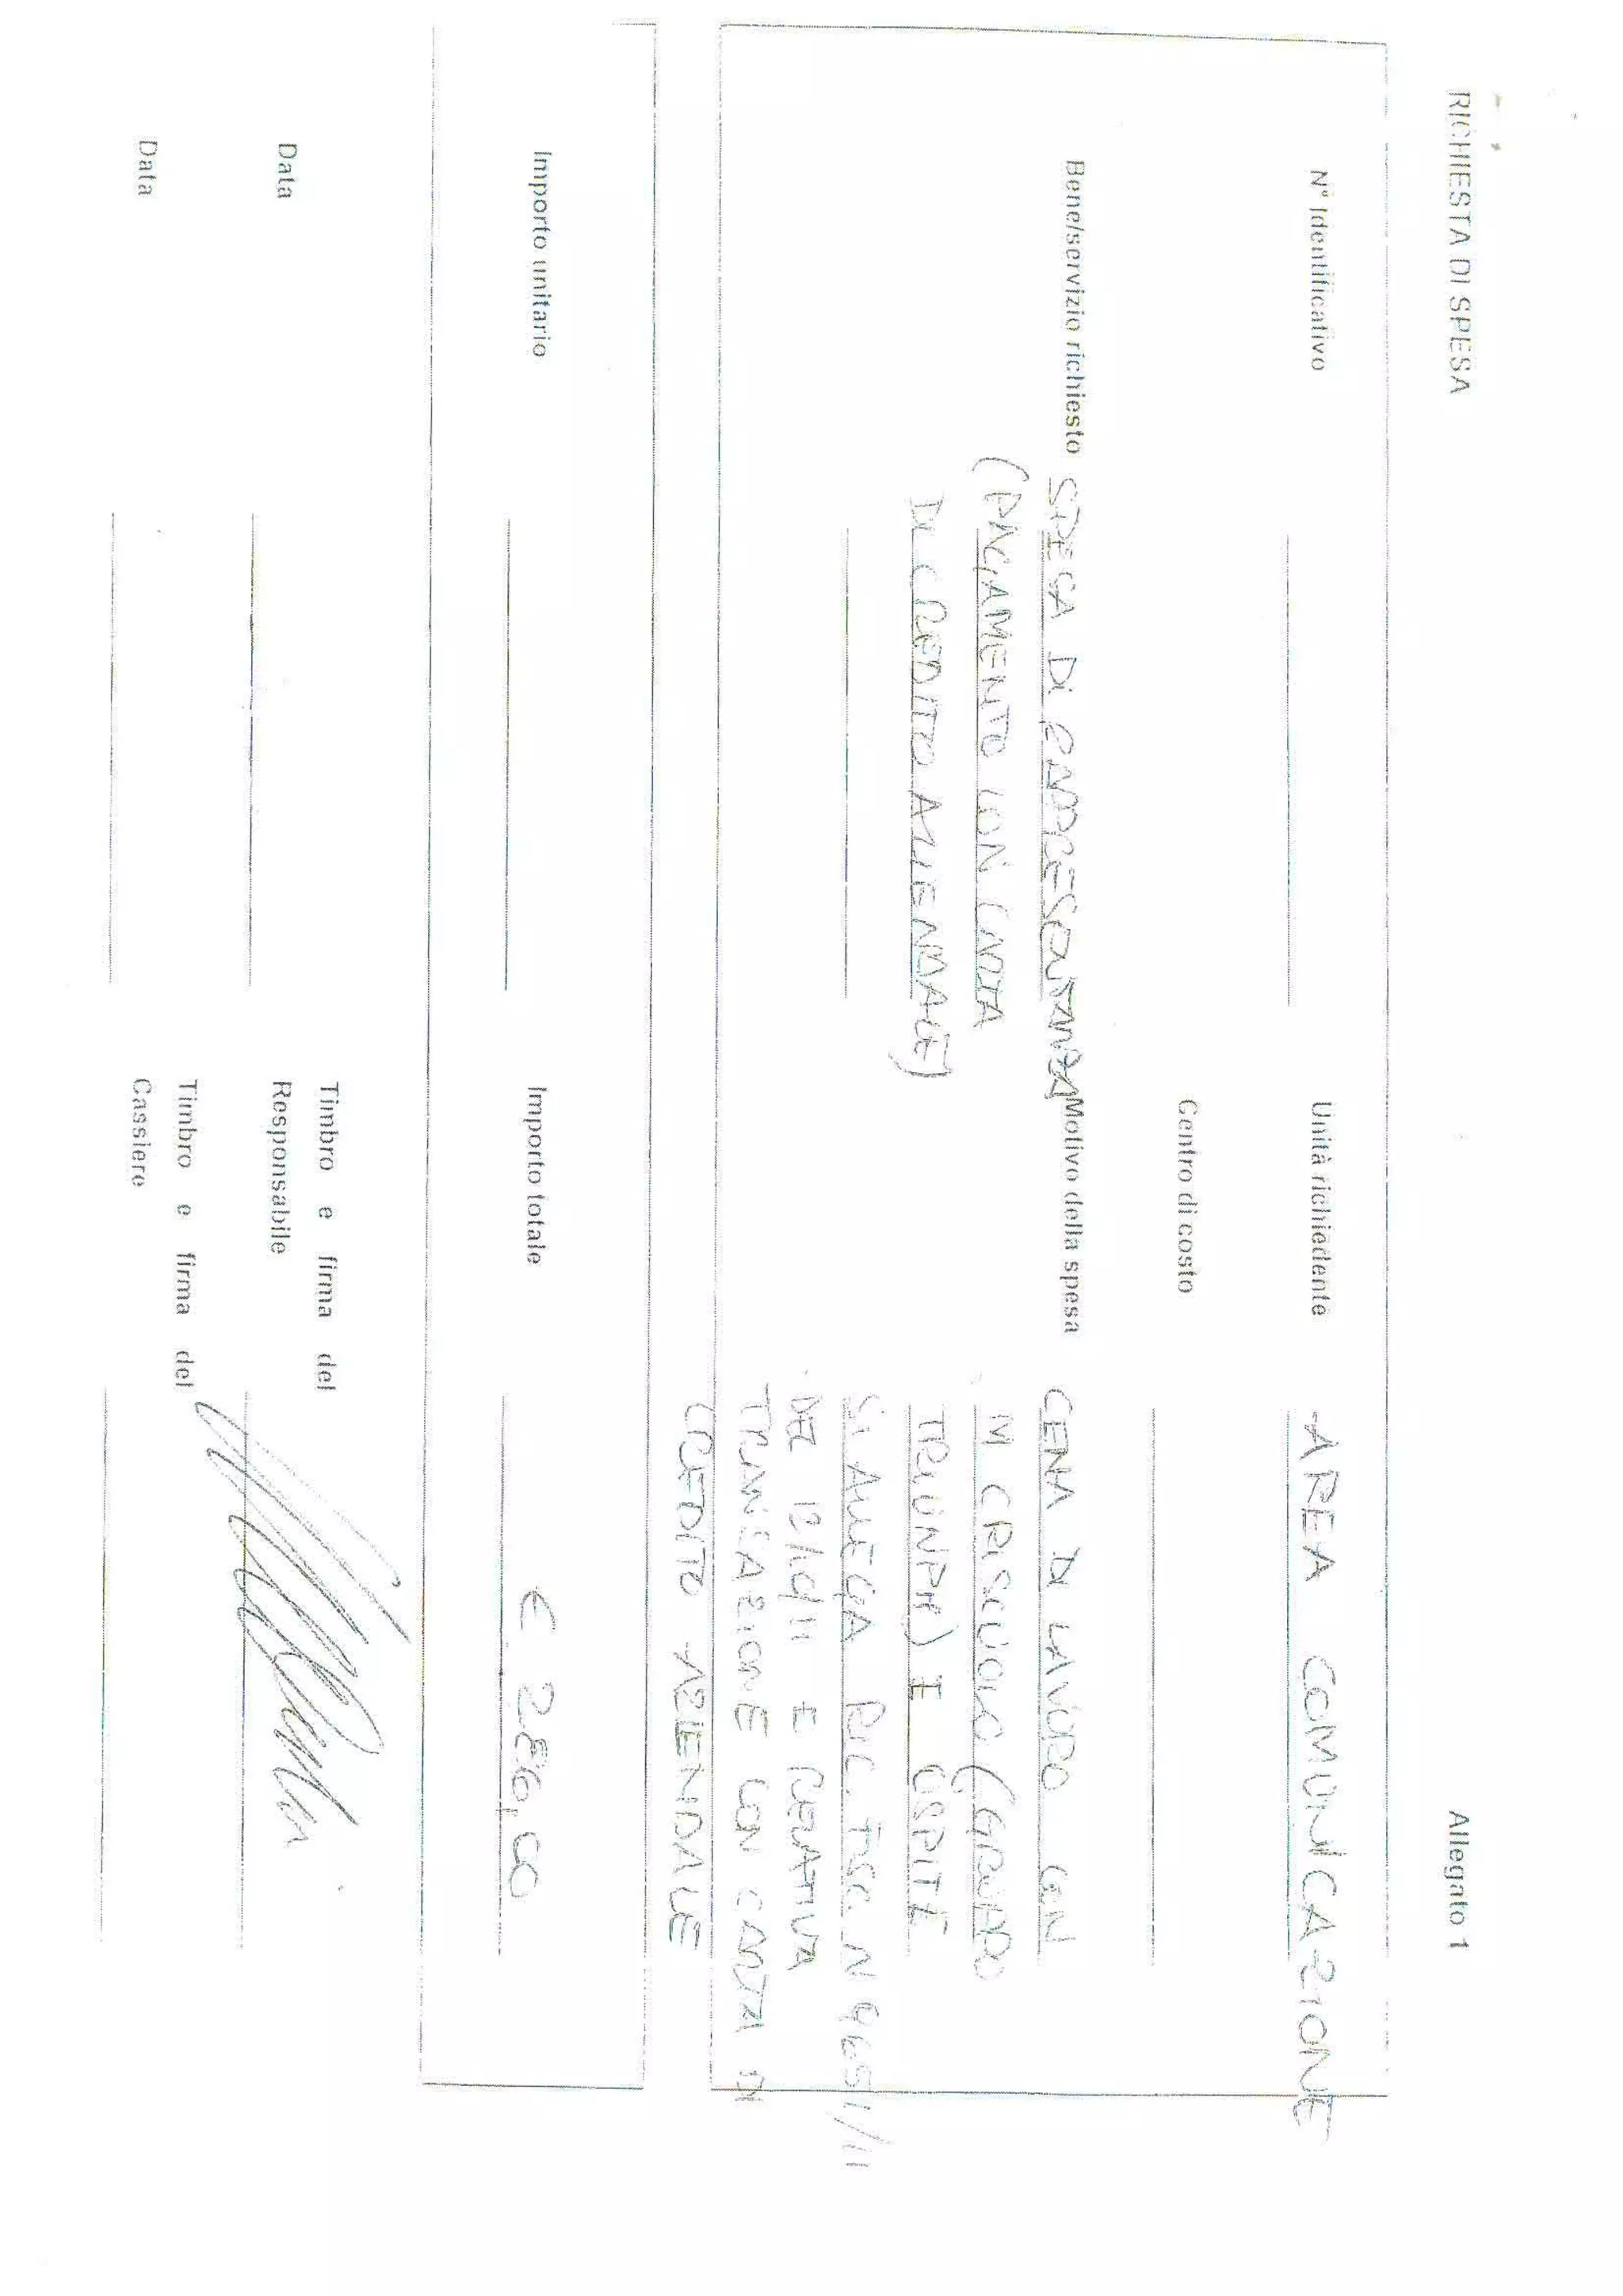 Allegato 1
RICHIESTA DI SPESA
N° Identificativo
Unità richiedente AREA COMUNICAZIONE
Centro di costo
Bene/servizio richiesto SPESA DI RAPPRESENTANZA
(PAGAMENTO CON CARTA
DI CREDITO AZIENDALE)
Motivo della spesa CENA DI LAVORO CON
M CRISCUOLO (GRUPPO
TRIUNPH) E OSPITE
SI ALLEGA RIC. FISC. N 9651/11
DEL E RELATIVA
TRANSAZIONE CON CARTA DI
CREDITO AZIENDALE
Importo unitario
Importo totale € 286,00
Data
Timbro e firma del
Responsabile
Data
Timbro e firma del
Cassiere